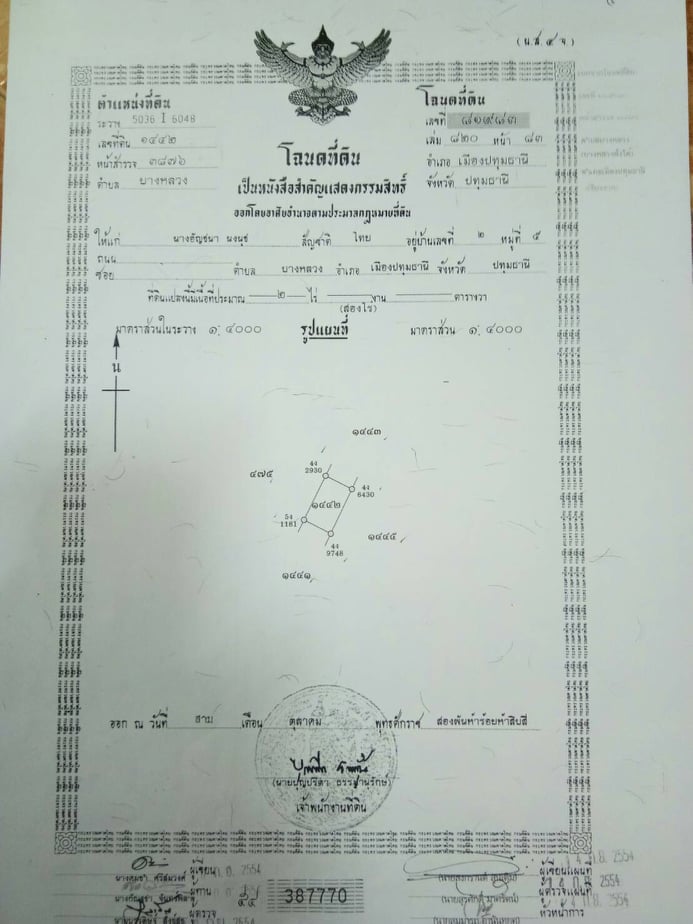 (น.ส.๔ จ)
ตำแหน่งที่ดิน
ระวาง 5036 I 6048
เลขที่ดิน ๑๔๔๒
หน้าสำรวจ ๓๘๗๖
ตำบล บางหลวง
โฉนดที่ดิน
เป็นหนังสือสำคัญแสดงกรรมสิทธิ์
ออกโดยอาศัยอำนาจตามประมวลกฎหมายที่ดิน
โฉนดที่ดิน
เลขที่ ๘๑๙๘๓
เล่ม ๘๒๐ หน้า ๘๓
อำเภอ เมืองปทุมธานี
จังหวัด ปทุมธานี
ให้แก่ นางอัญชนา นงนุช สัญชาติ ไทย อยู่บ้านเลขที่ ๒ หมู่ที่ ๕
ถนน
ซอย ตำบล บางหลวง อำเภอ เมืองปทุมธานี จังหวัด ปทุมธานี
ที่ดินแปลงนี้มีเนื้อที่ประมาณ ๒ ไร่ งาน ตารางวา
(สองไร่)
มาตราส่วนในระวาง ๑:๔๐๐๐ รูปแผนที่ มาตราส่วน ๑:๔๐๐๐
น
๑๔๔๓
๔๗๕
4ง
2930
4ง
6430
๑๔๔๒
5ง
1181
4ง
9748
๑๔๔๕
๑๔๔๑
ออก ณ วันที่ สาม เดือน ตุลาคม พุทธศักราช สองพันห้าร้อยห้าสิบสี่
เจ้าพนักงานที่ดิน
ผู้เขียน 2554
ผู้ทาน
ผู้ตรวจ
387770
ผู้เขียนแผนที่
ผู้ตรวจแผนที่
หัวหน้าการ